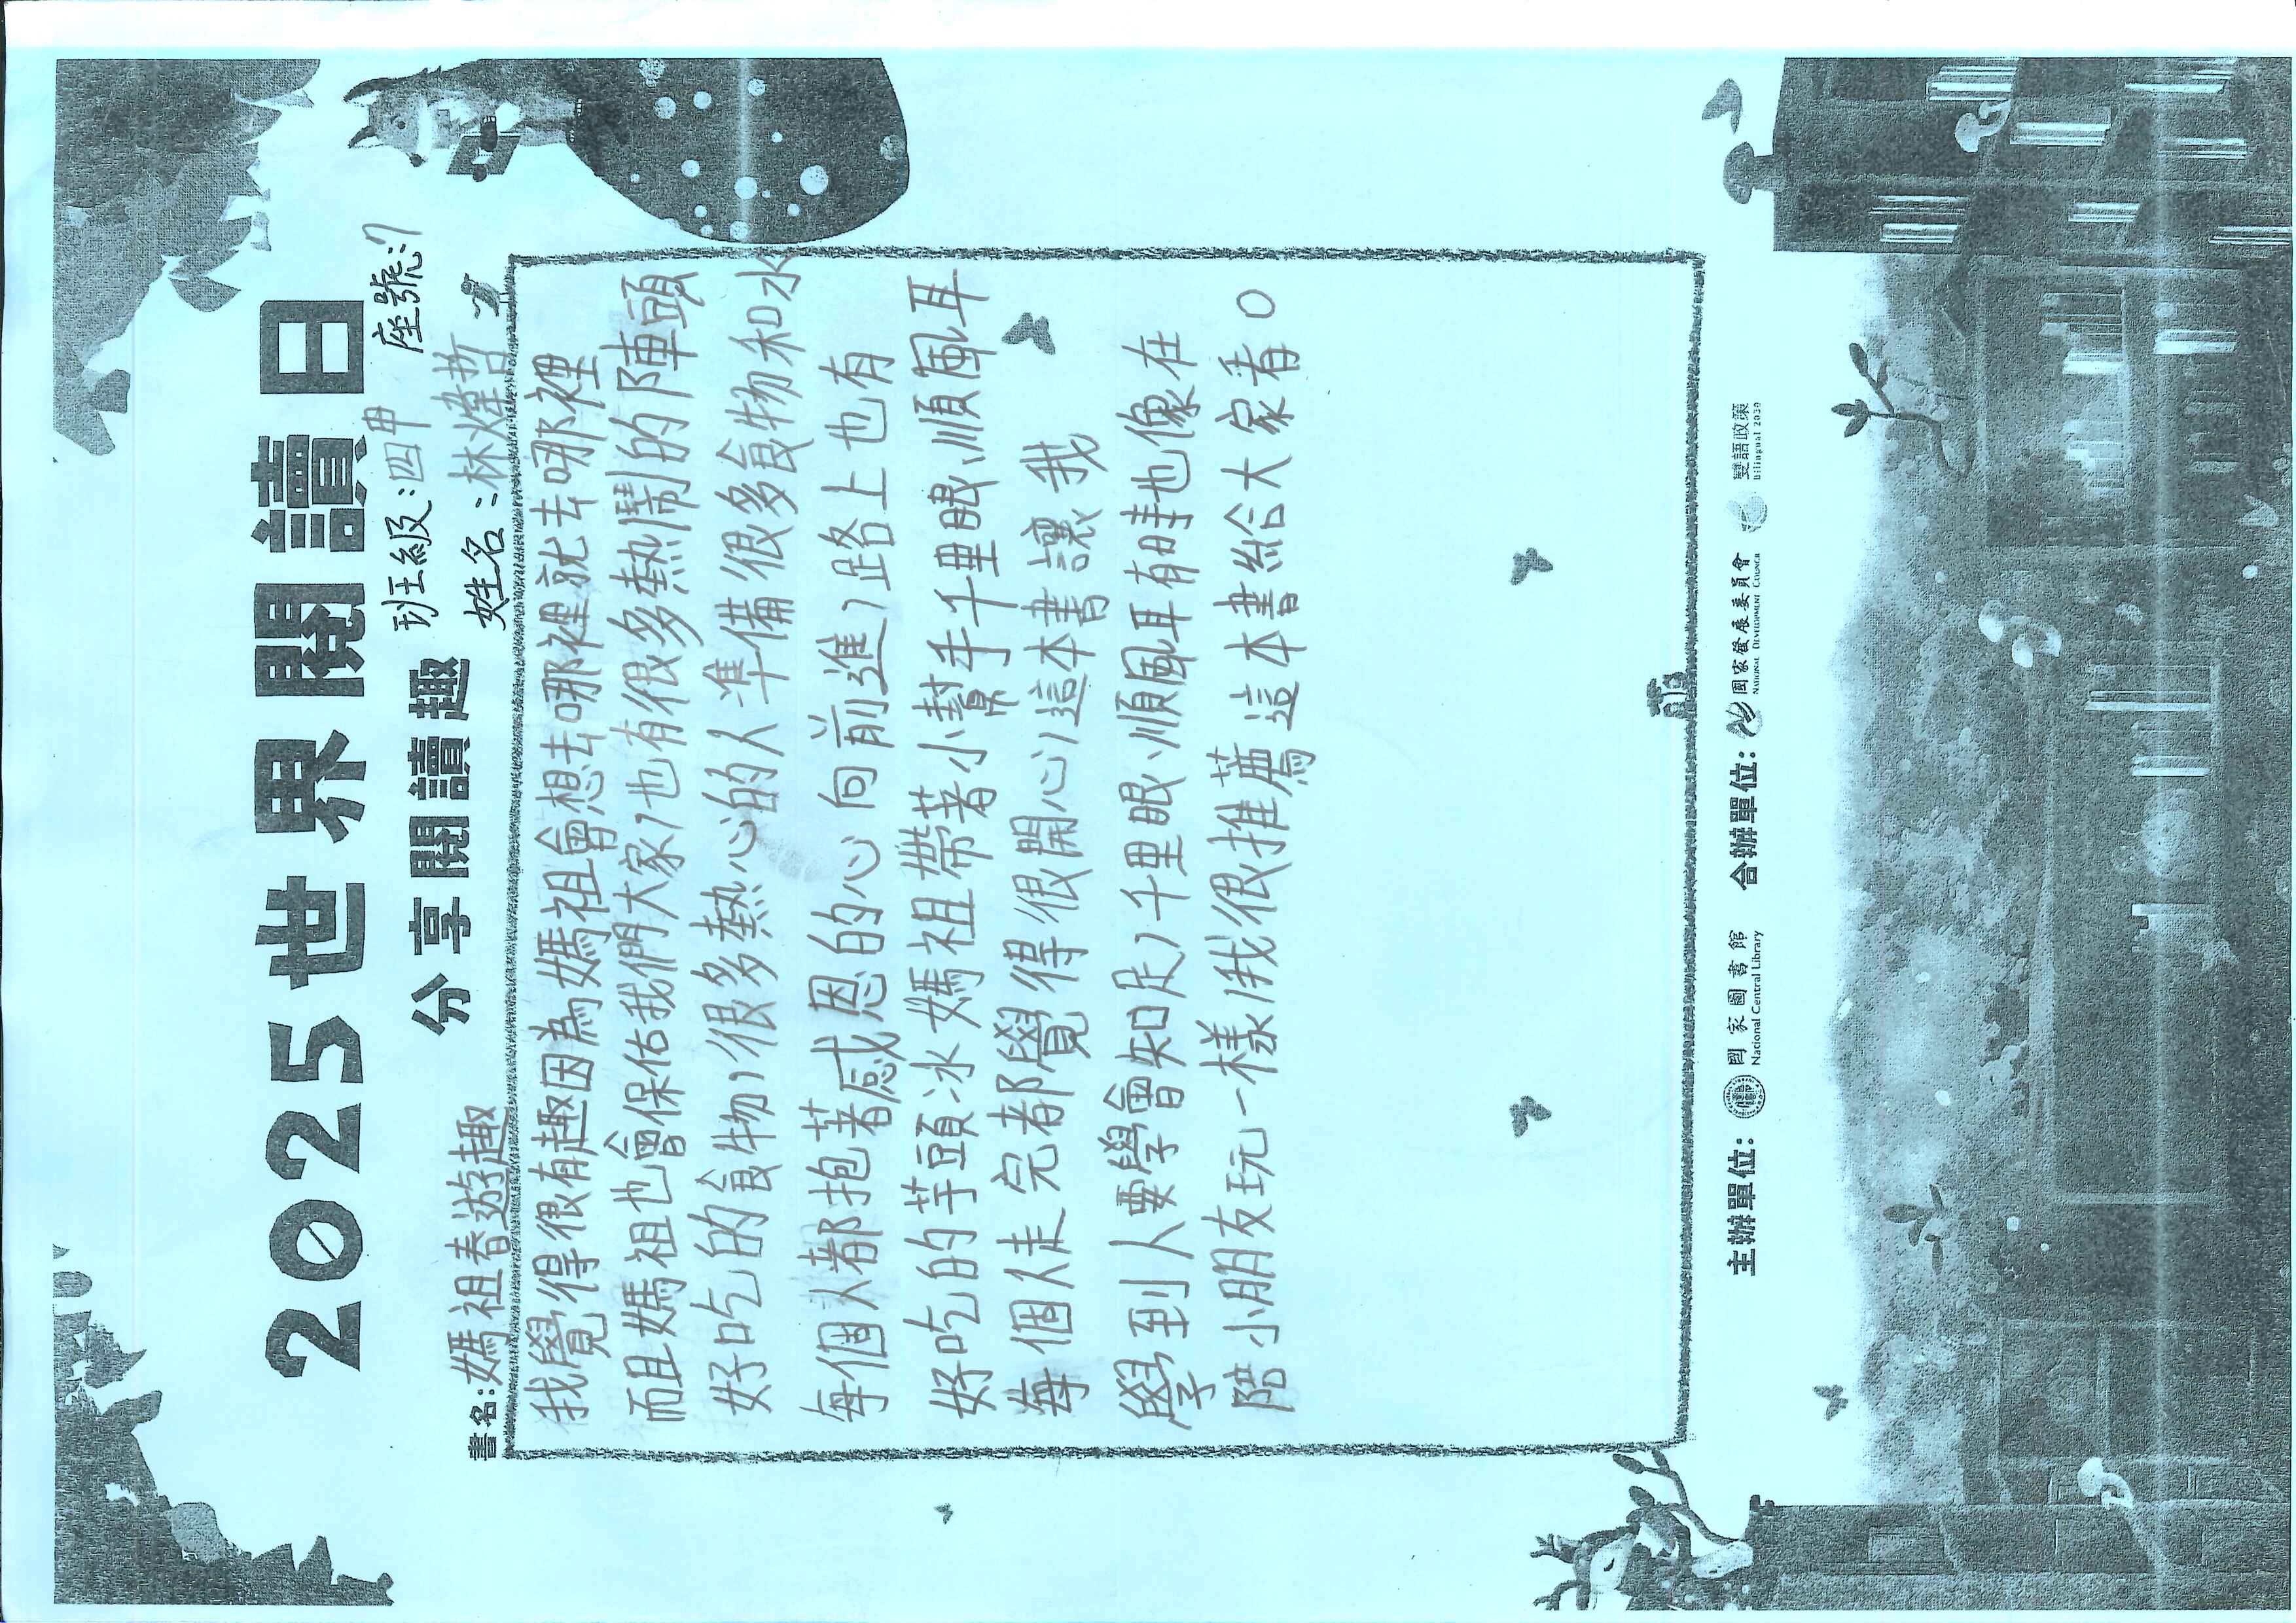 2025世界閱讀日
分享閱讀趣
班級:四甲 座號:7
姓名:林煒哲
書名:媽祖春遊趣
我覺得很有趣因為媽祖會想去哪裡就去哪裡
而且媽祖也會保佑我們大家,也有很多熱鬧的陣頭
好吃的食物,很多熱心的人準備很多食物和水
每個人都抱著感恩的心向前進,路上也有
好吃的芋頭冰媽祖帶著小幫手千里眼、順風耳
每個人走完都覺得很開心,這本書讓我
學到人要學會知足,千里眼、順風耳有時也像在
陪小朋友玩一樣,我很推薦這本書給大家看。
主辦單位: 國家圖書館 National Central Library 合辦單位: 國家發展委員會 NATIONAL DEVELOPMENT COUNCIL 雙語政策 Bilingual 2030